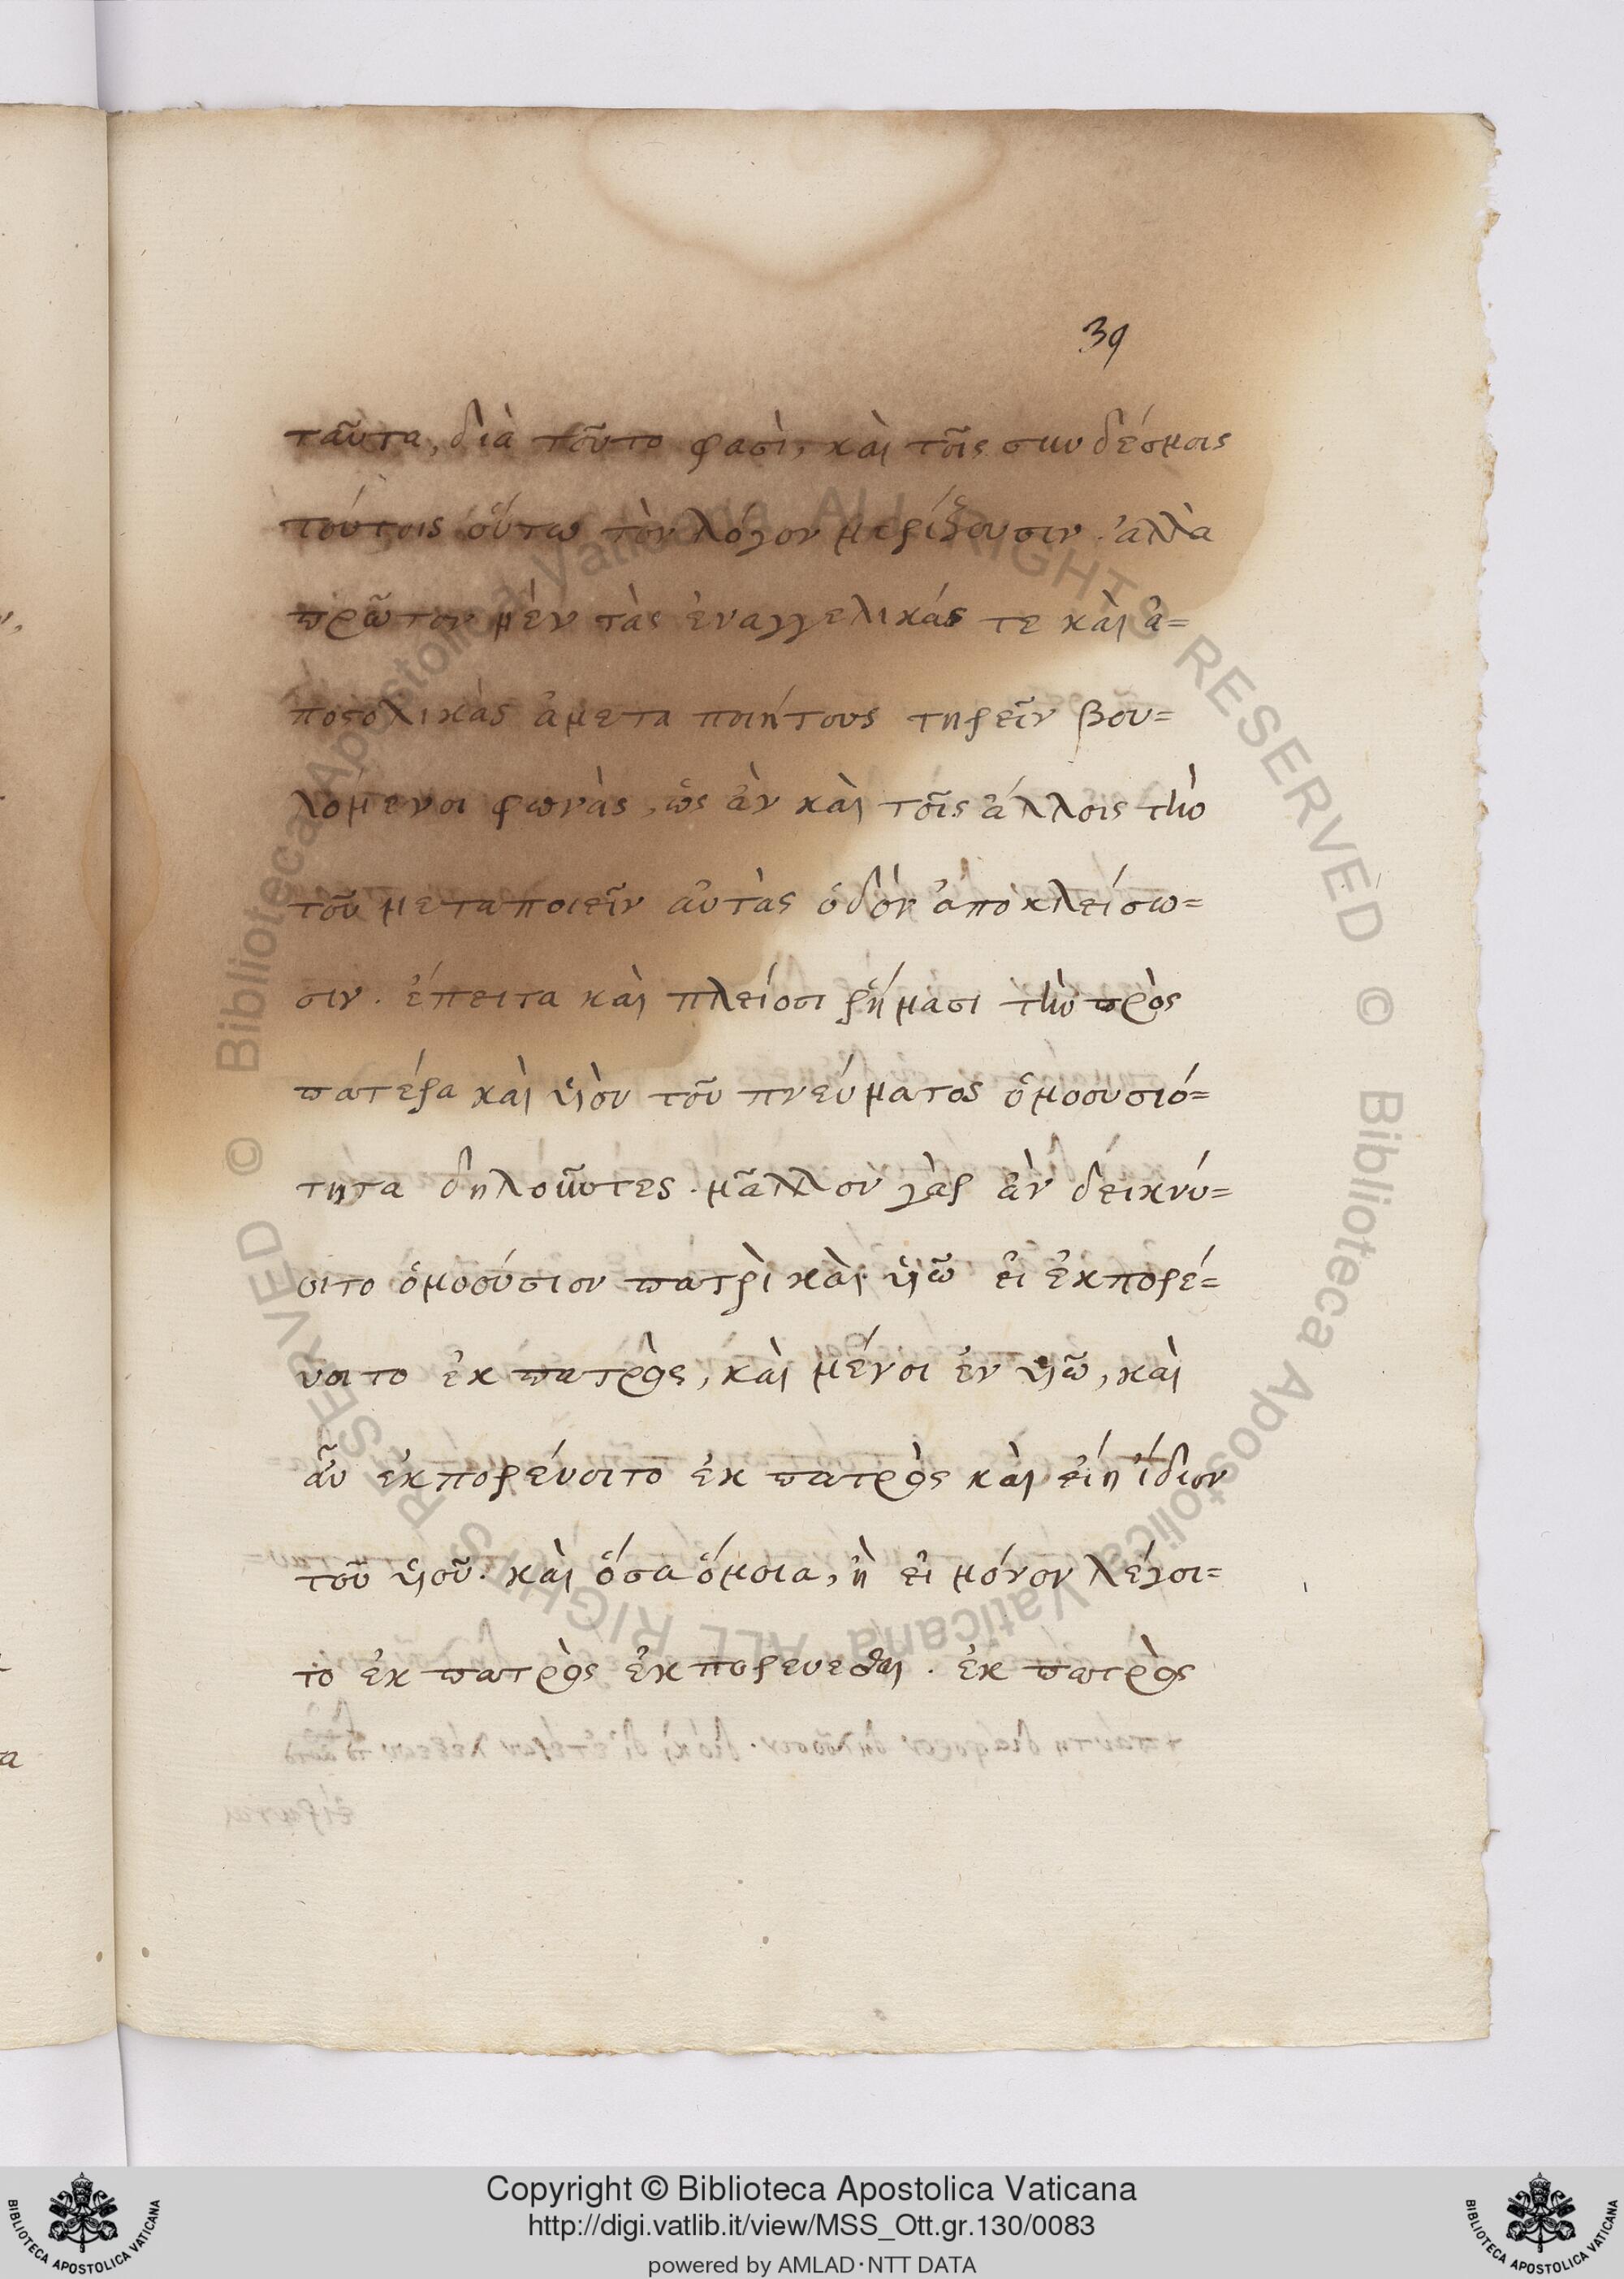 39
ταῦτα, διὰ τοῦτο φασὶ, καὶ τοῖς συνδέσμοις
τούτοις οὕτω τὸν λόγον μερίζουσιν. ἀλλὰ
πρῶτον μέν τὰς ἐυαγγελικάς τε καὶ ἀ=
ποστολικὰς ἀμεταποιήτους τηρεῖν βου=
λόμενοι φωνὰς, ὡς ἀν καὶ τοῖς ἄλλοις τὴν
τοῦ μεταποιεῖν αὐτὰς ὁδὸν ἀποκλείσω=
σιν. ἔπειτα καὶ πλείοσι ῥήμασι τὴν πρὸς
πατέρα καὶ ὑιὸν τοῦ πνεύματος ὁμοουσιό=
τητα δηλοῦντες. μᾶλλον γὰρ ἀν δεικνύ=
οιτο ὁμοούσιον πατρὶ καὶ ὑιῶ εἰ ἐκπορέ=
υοιτο ἐκ πατρὸς, καὶ μένοι ἐν ὑιῶ, καὶ
ἀν ἐκπορέυοιτο ἐκ πατρὸς καὶ εἴη ἴδιον
τοῦ ὑιοῦ. καὶ ὅσα ὅμοια, ἢ εἰ μόνον λέγοι=
το ἐκ πατρὸς ἐκπορευεσθαι. ἐκ πατρὸς
© Biblioteca Apostolica Vaticana ALL RIGHTS RESERVED
© Biblioteca Apostolica Vaticana ALL RIGHTS RESERVED
Copyright © Biblioteca Apostolica Vaticana
http://digi.vatlib.it/view/MSS_Ott.gr.130/0083
powered by AMLAD·NTT DATA
BIBLIOTECA APOSTOLICA VATICANA
BIBLIOTECA APOSTOLICA VATICANA